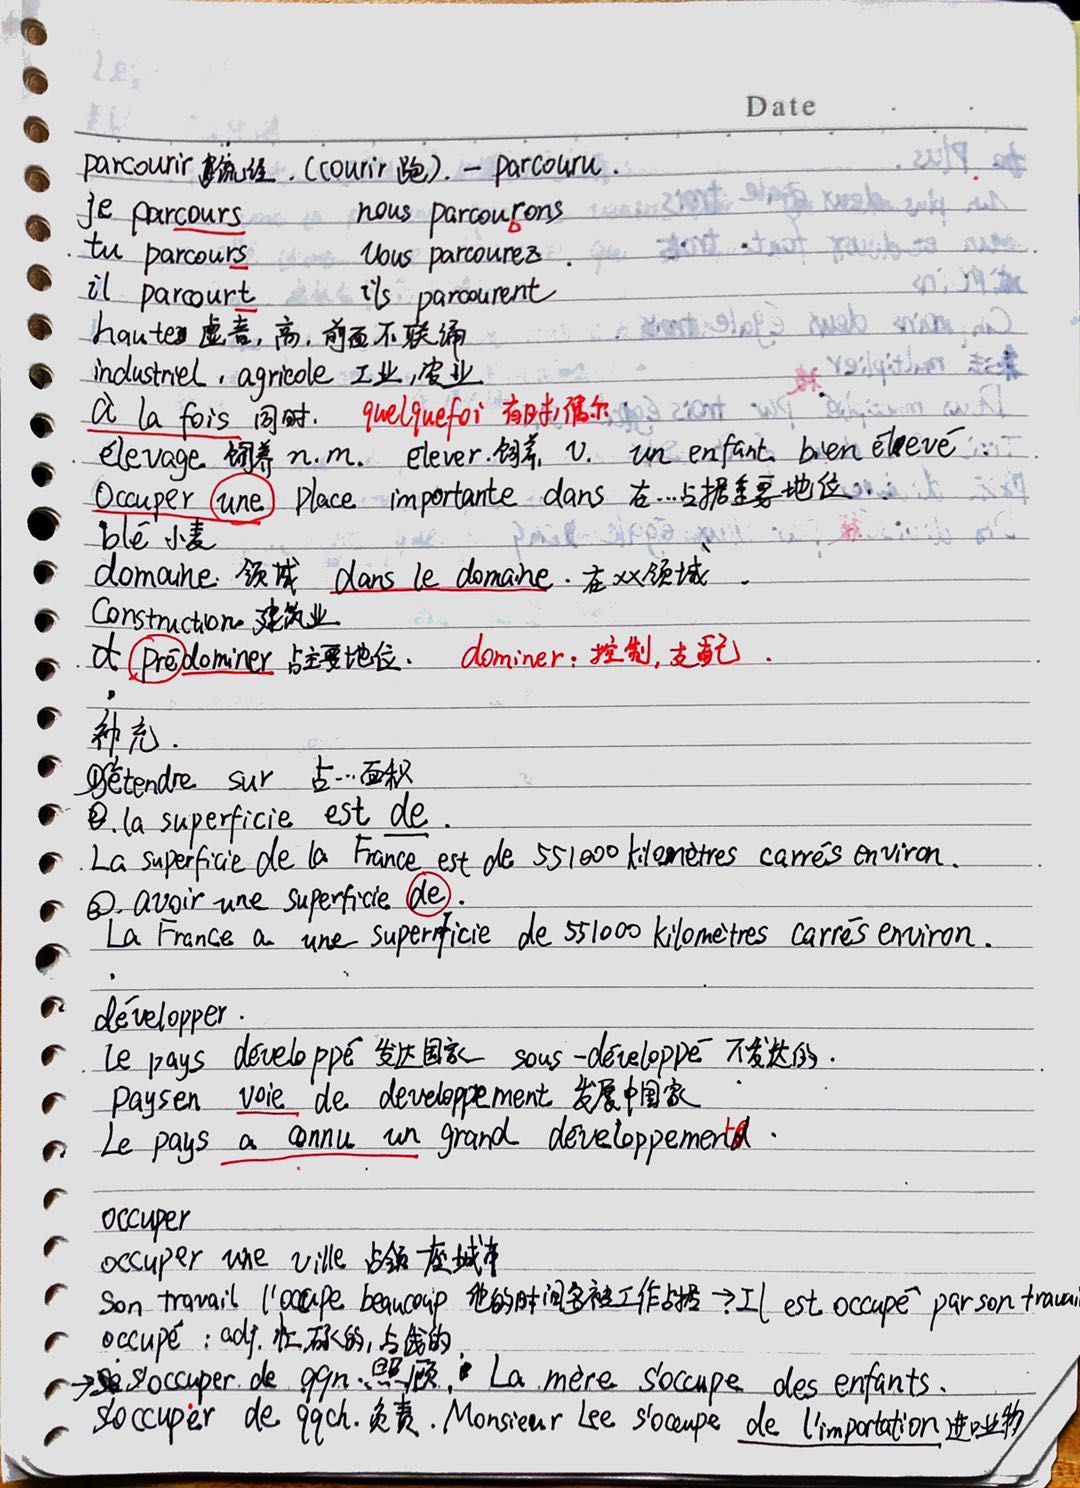 Date
parcourir 流经.(courir 跑). — parcouru.
je parcours nous parcourons
tu parcours vous parcourez.
il parcourt ils parcourent
haute 虚音,高,前面不联诵
industriel, agricole 工业,农业
à la fois 同时. quelquefoi 有时,偶尔
élevage 饲养 n.m. elever.饲养, v. un enfant bien élevé.
Occuper une place importante dans 在…占据重要地位.
blé 小麦
domaine 领域 dans le domaine. 在xx领域.
Construction 建筑业
prédominer 占主要地位. dominer: 控制,支配.
补充.
① s'étendre sur 占…面积
②. la superficie est de.
La superficie de la France est de 551000 kilomètres carrés environ.
③. avoir une superficie de.
La France a une superficie de 551000 kilomètres carrés environ.
développer.
le pays développé 发达国家 sous-développé 不发达的.
Pays en voie de developpement 发展中国家
Le pays a connu un grand développement.
occuper
occuper une ville 占领一座城市
Son travail l'occupe beaucoup 他的时间多被工作占据 → Il est occupé par son travail
occupé : adj. 忙碌的,占线的
→ s'occuper de qqn.照顾, La mère s'occupe des enfants.
s'occuper de qqch. 负责. Monsieur Lee s'occupe de l'importation 进口